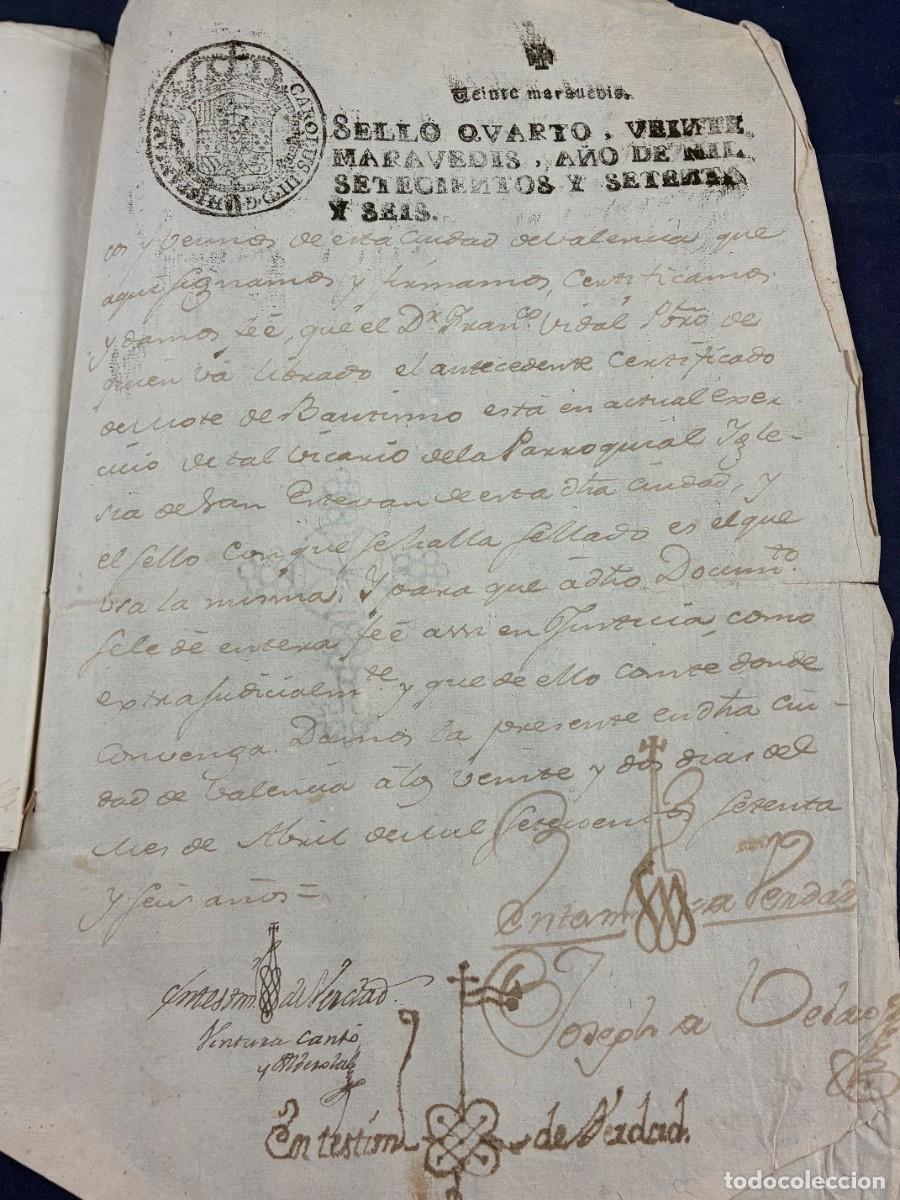 CAROLUS III D.G. HISPANIAR
Veinte maravedis.
SELLO QVARTO, VEINTE
MARAVEDIS, AÑO DE MIL
SETECIENTOS Y SETENTA
Y SEIS.
cos y vecinos de esta Ciudad de Valencia, que
aqui signamos y firmamos, Certificamos
y damos feé, que el Dr. Franco. Vidal Pbro de
quien vá librado el antecedente Certificado
del Mote de Bautismo está en actual exer
cicio de tal Vicario dela Parroquial Ygle-
sia de San Estevan de esta dha Ciudad, y
el sello con que se halla sellado es el que
usa la misma. Y para que á dho Documto.
sele dé entera feé assi en Justicia como
extrajudicialmte y que de ello conste donde
Convenga. Damos la presente en dha Ciu-
dad de Valencia á los veinte y dos dias del
Mes de Abril de Mil Setecientos Setenta
y seis años =
En testim de Verdad
En testim de Verdad.
Ventura Cantó
y
Joseph
En testim de Verdad.
todocoleccion